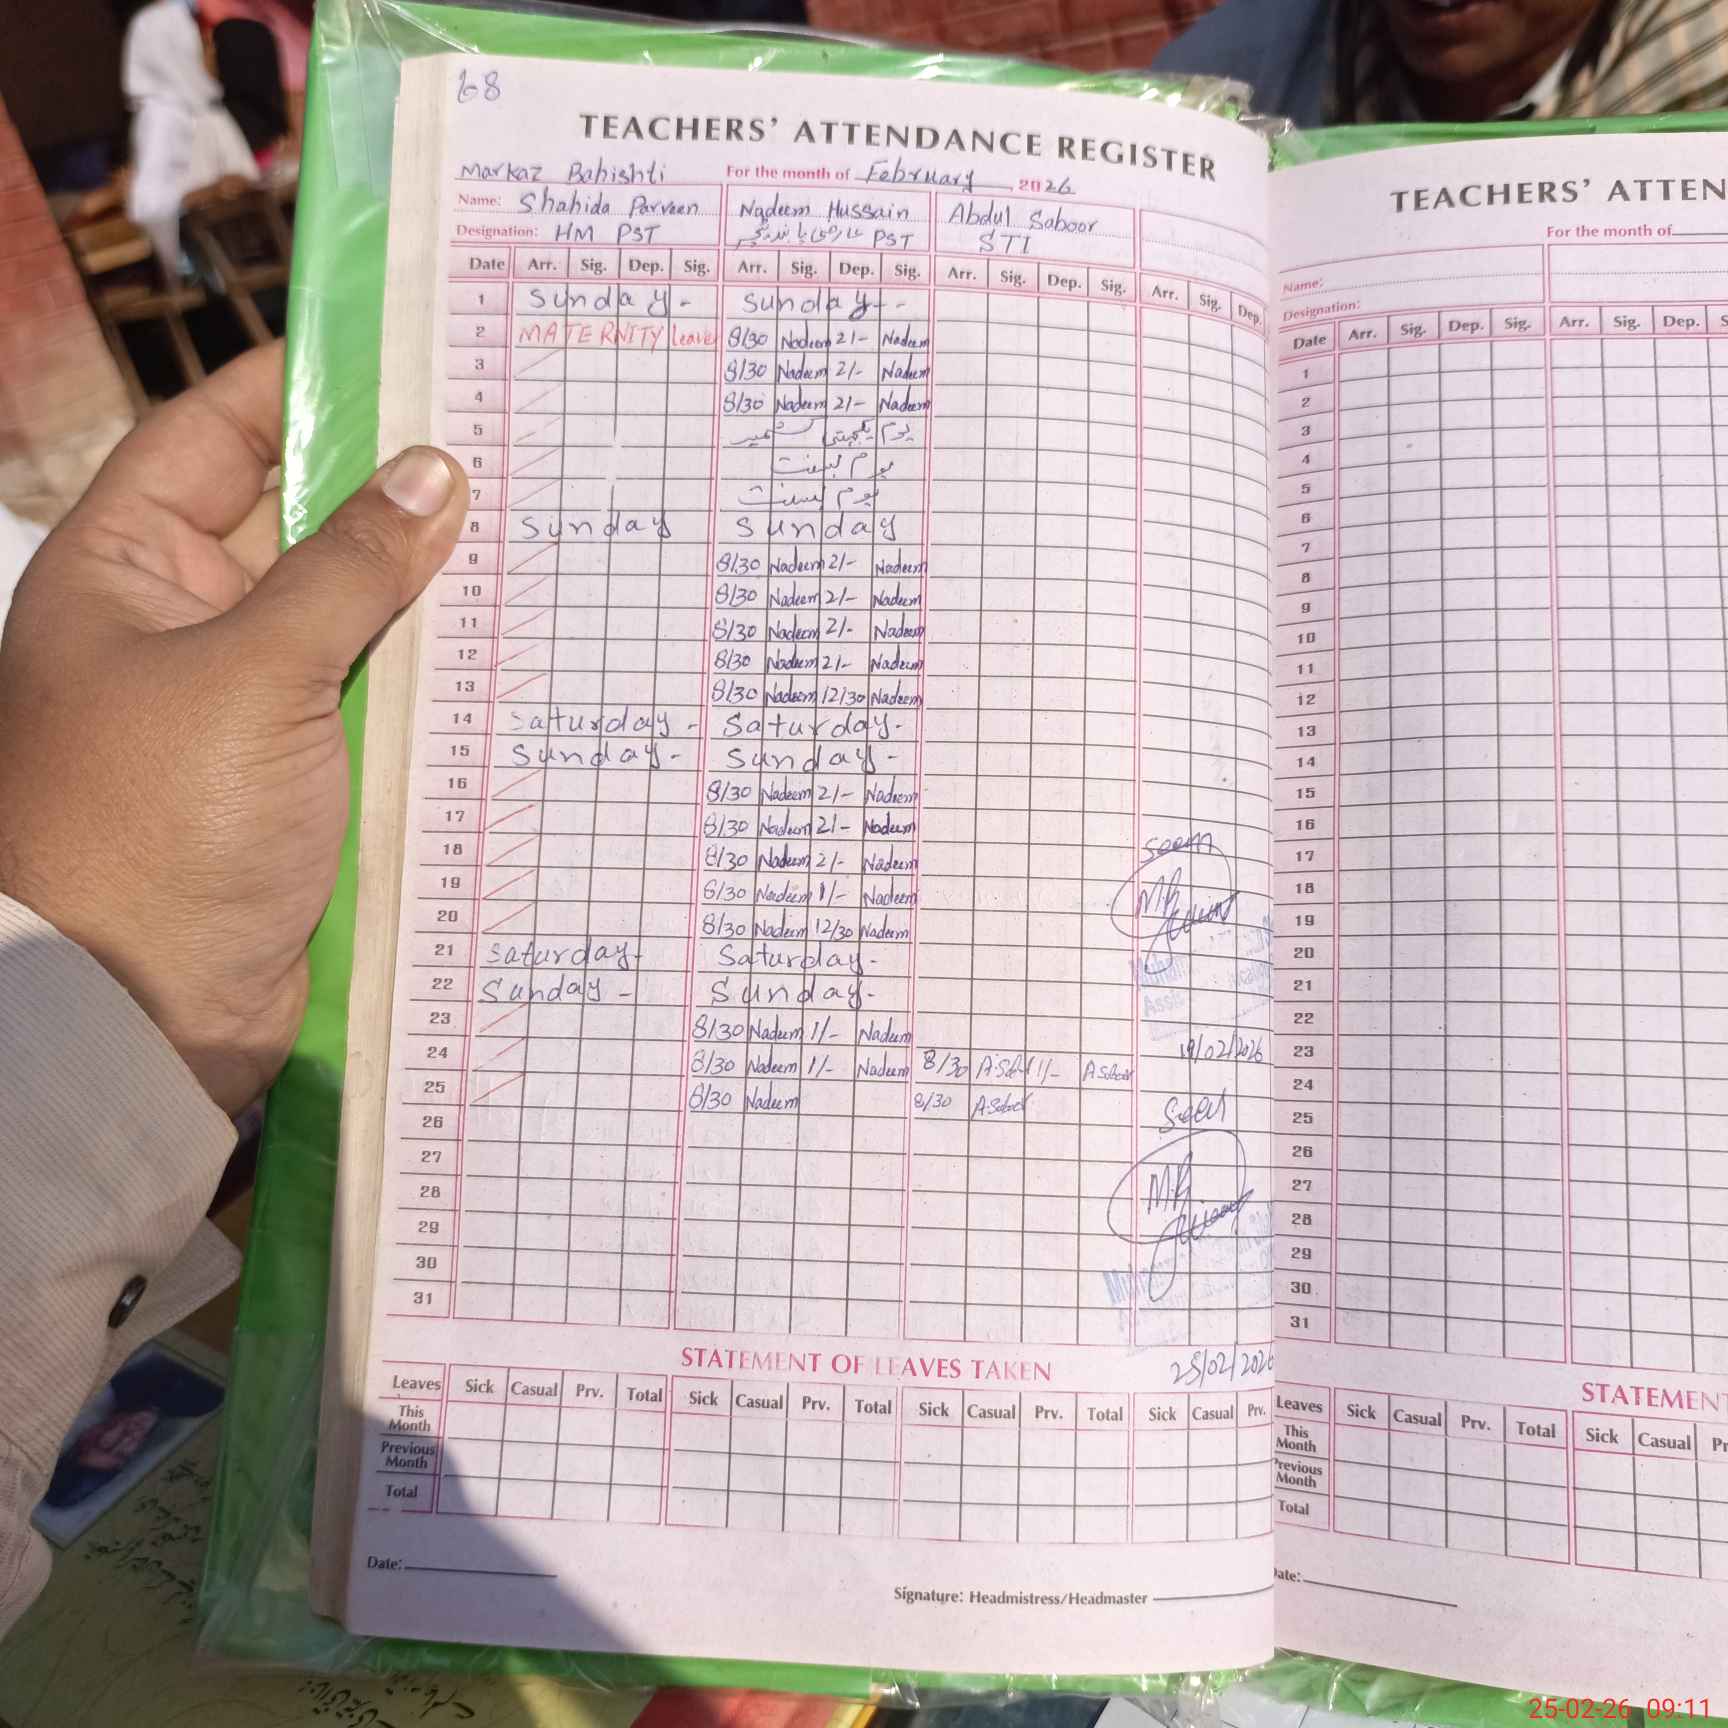 68
TEACHERS' ATTENDANCE REGISTER
Markaz Bahishti For the month of February, 2026
Name: Shahida Parveen Nadeem Hussain Abdul Saboor
Designation: HM PST PST STI
Date Arr. Sig. Dep. Sig. Arr. Sig. Dep. Sig. Arr. Sig. Dep. Sig. Arr. Sig. Dep.
1 Sunday - Sunday -
2 MATERNITY leave 8/30 Nadeem 2/- Nadeem
3 8/30 Nadeem 2/- Nadeem
4 8/30 Nadeem 2/- Nadeem
5 یوم یکجہتی کشمیر
6 یوم بسنت
7 یوم بسنت
8 Sunday Sunday
9 8/30 Nadeem 2/- Nadeem
10 8/30 Nadeem 2/- Nadeem
11 8/30 Nadeem 2/- Nadeem
12 8/30 Nadeem 2/- Nadeem
13 8/30 Nadeem 12/30 Nadeem
14 Saturday - Saturday -
15 Sunday - Sunday -
16 8/30 Nadeem 2/- Nadeem
17 8/30 Nadeem 2/- Nadeem
18 8/30 Nadeem 2/- Nadeem seen
19 8/30 Nadeem 1/- Nadeem
20 8/30 Nadeem 12/30 Nadeem
21 Saturday - Saturday -
22 Sunday - Sunday -
23 8/30 Nadeem 1/- Nadeem 19/02/2026
24 8/30 Nadeem 1/- Nadeem 8/30 A.Saboor 1/- A Saboor
25 8/30 Nadeem 8/30 A.Saboor Seen
26
27
28
29
30
31
STATEMENT OF LEAVES TAKEN 25/02/2026
Leaves Sick Casual Prv. Total Sick Casual Prv. Total Sick Casual Prv. Total Sick Casual Prv.
This Month
Previous Month
Total
Date:
Signature: Headmistress/Headmaster
TEACHERS' ATTEN
For the month of
Name:
Designation:
Date Arr. Sig. Dep. Sig. Arr. Sig. Dep. S
1
2
3
4
5
6
7
8
9
10
11
12
13
14
15
16
17
18
19
20
21
22
23
24
25
26
27
28
29
30
31
STATEMENT
Leaves Sick Casual Prv. Total Sick Casual Pr
This Month
Previous Month
Total
Date:
25-02-26 09:11